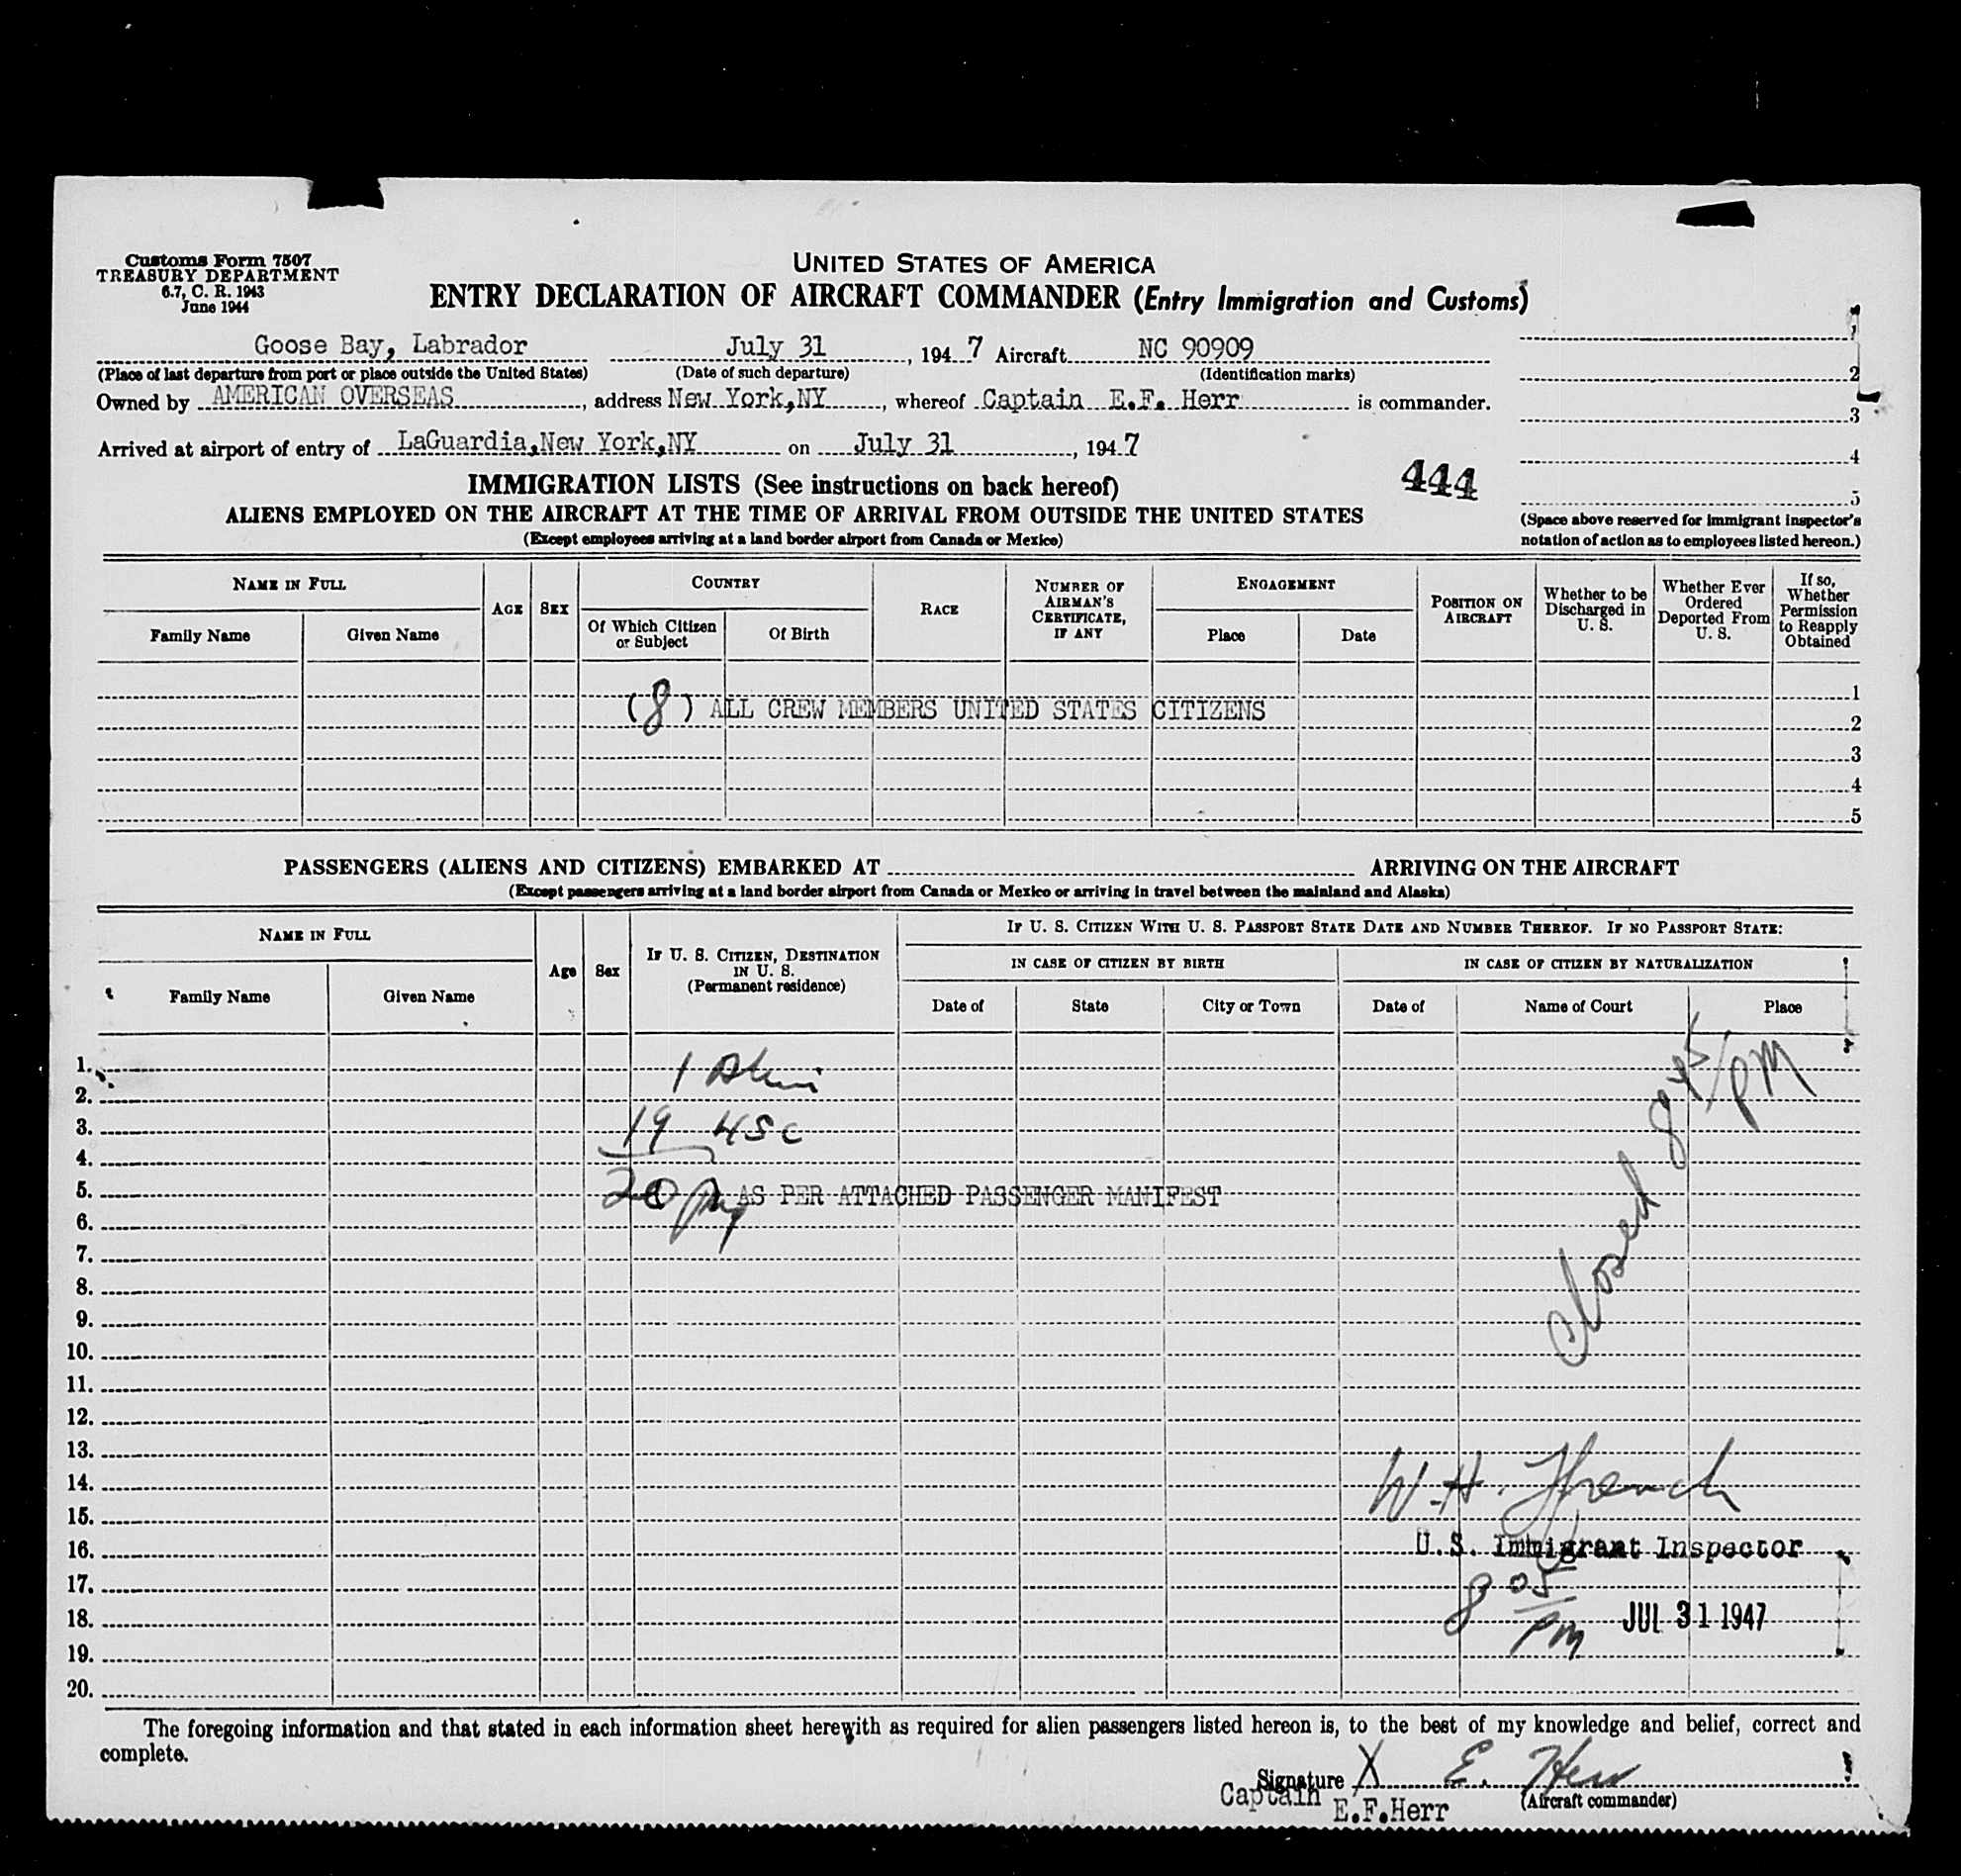 Customs Form 7507
TREASURY DEPARTMENT
6.7, C. R. 1943
June 1944
UNITED STATES OF AMERICA
ENTRY DECLARATION OF AIRCRAFT COMMANDER (Entry Immigration and Customs)
Goose Bay, Labrador July 31, 1947 Aircraft NC 90909
(Place of last departure from port or place outside the United States) (Date of such departure) (Identification marks)
Owned by AMERICAN OVERSEAS, address New York,NY, whereof Captain E.F. Herr is commander.
Arrived at airport of entry of LaGuardia,New York,NY on July 31, 1947
1
2
3
4
5
(Space above reserved for immigrant inspector's
notation of action as to employees listed hereon.)
444
IMMIGRATION LISTS (See instructions on back hereof)
ALIENS EMPLOYED ON THE AIRCRAFT AT THE TIME OF ARRIVAL FROM OUTSIDE THE UNITED STATES
(Except employees arriving at a land border airport from Canada or Mexico)
NAME IN FULL
Family Name Given Name
AGE SEX
COUNTRY
Of Which Citizen or Subject Of Birth
RACE
NUMBER OF AIRMAN'S CERTIFICATE, IF ANY
ENGAGEMENT
Place Date
POSITION ON AIRCRAFT
Whether to be Discharged in U. S.
Whether Ever Ordered Deported From U. S.
If so, Whether Permission to Reapply Obtained
1
(8) ALL CREW MEMBERS UNITED STATES CITIZENS
2
3
4
5
PASSENGERS (ALIENS AND CITIZENS) EMBARKED AT ARRIVING ON THE AIRCRAFT
(Except passengers arriving at a land border airport from Canada or Mexico or arriving in travel between the mainland and Alaska)
NAME IN FULL
Family Name Given Name
Age Sex
IF U. S. CITIZEN, DESTINATION IN U. S.
(Permanent residence)
IF U. S. CITIZEN WITH U. S. PASSPORT STATE DATE AND NUMBER THEREOF. IF NO PASSPORT STATE:
IN CASE OF CITIZEN BY BIRTH IN CASE OF CITIZEN BY NATURALIZATION
Date of State City or Town Date of Name of Court Place
1. 1
2.
3. 19 USC
4.
5. 20 AS PER ATTACHED PASSENGER MANIFEST
6.
7.
8.
9.
10.
Closed 8 45/PM
11.
12.
13.
14. W.H. French
15.
16. U.S. Immigrant Inspector
17.
18. 8 05 PM JUL 31 1947
19.
20.
The foregoing information and that stated in each information sheet herewith as required for alien passengers listed hereon is, to the best of my knowledge and belief, correct and
complete.
Signature X E. Herr
(Aircraft commander)
Captain E.F.Herr